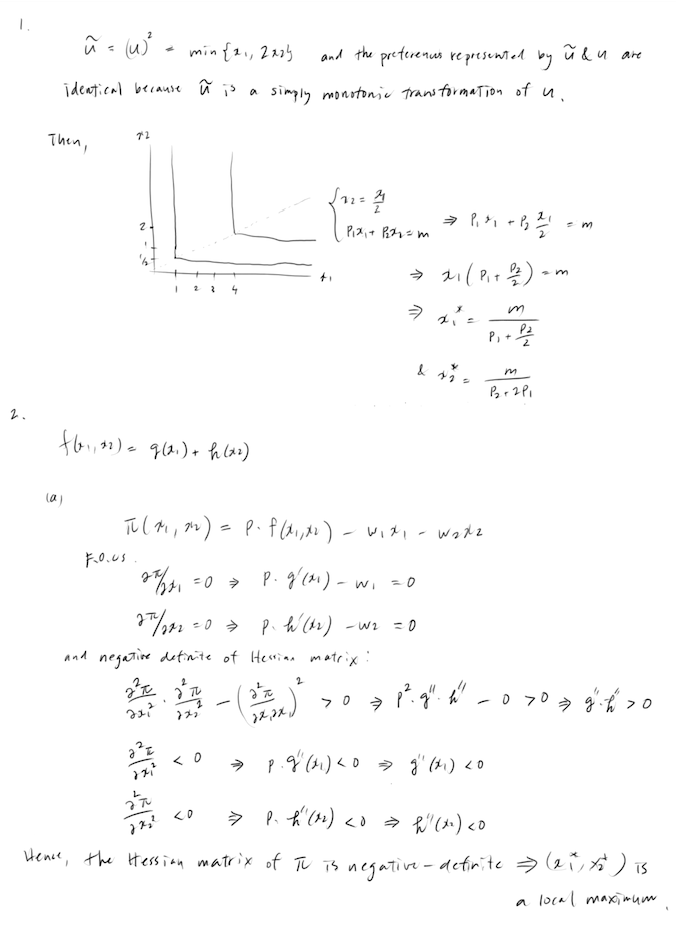 1.
ũ = (u)² = min{x₁, 2x₂} and the preferences represented by ũ & u are
identical because ũ is a simply monotonic transformation of u.
Then,
x2
2
1
1/2
1 2 3 4
x₁
{ x₂ = x₁/2
P₁x₁ + P₂x₂ = m ⇒ P₁x₁ + P₂ x₁/2 = m
⇒ x₁(P₁ + P₂/2) = m
⇒ x₁* = m / (P₁ + P₂/2)
& x₂* = m / (P₂ + 2P₁)
2.
f(x₁, x₂) = g(x₁) + h(x₂)
(a)
π(x₁, x₂) = P · f(x₁, x₂) - w₁x₁ - w₂x₂
F.O.Cs.
∂π/∂x₁ = 0 ⇒ P · g'(x₁) - w₁ = 0
∂π/∂x₂ = 0 ⇒ P · h'(x₂) - w₂ = 0
and negative definite of Hessian matrix:
∂²π/∂x₁² · ∂²π/∂x₂² - (∂²π/∂x₁∂x₂)² > 0 ⇒ P² · g'' · h'' - 0 > 0 ⇒ g'' · h'' > 0
∂²π/∂x₁² < 0 ⇒ P · g''(x₁) < 0 ⇒ g''(x₁) < 0
∂²π/∂x₂² < 0 ⇒ P · h''(x₂) < 0 ⇒ h''(x₂) < 0
Hence, the Hessian matrix of π is negative-definite ⇒ (x₁*, x₂*) is
a local maximum.